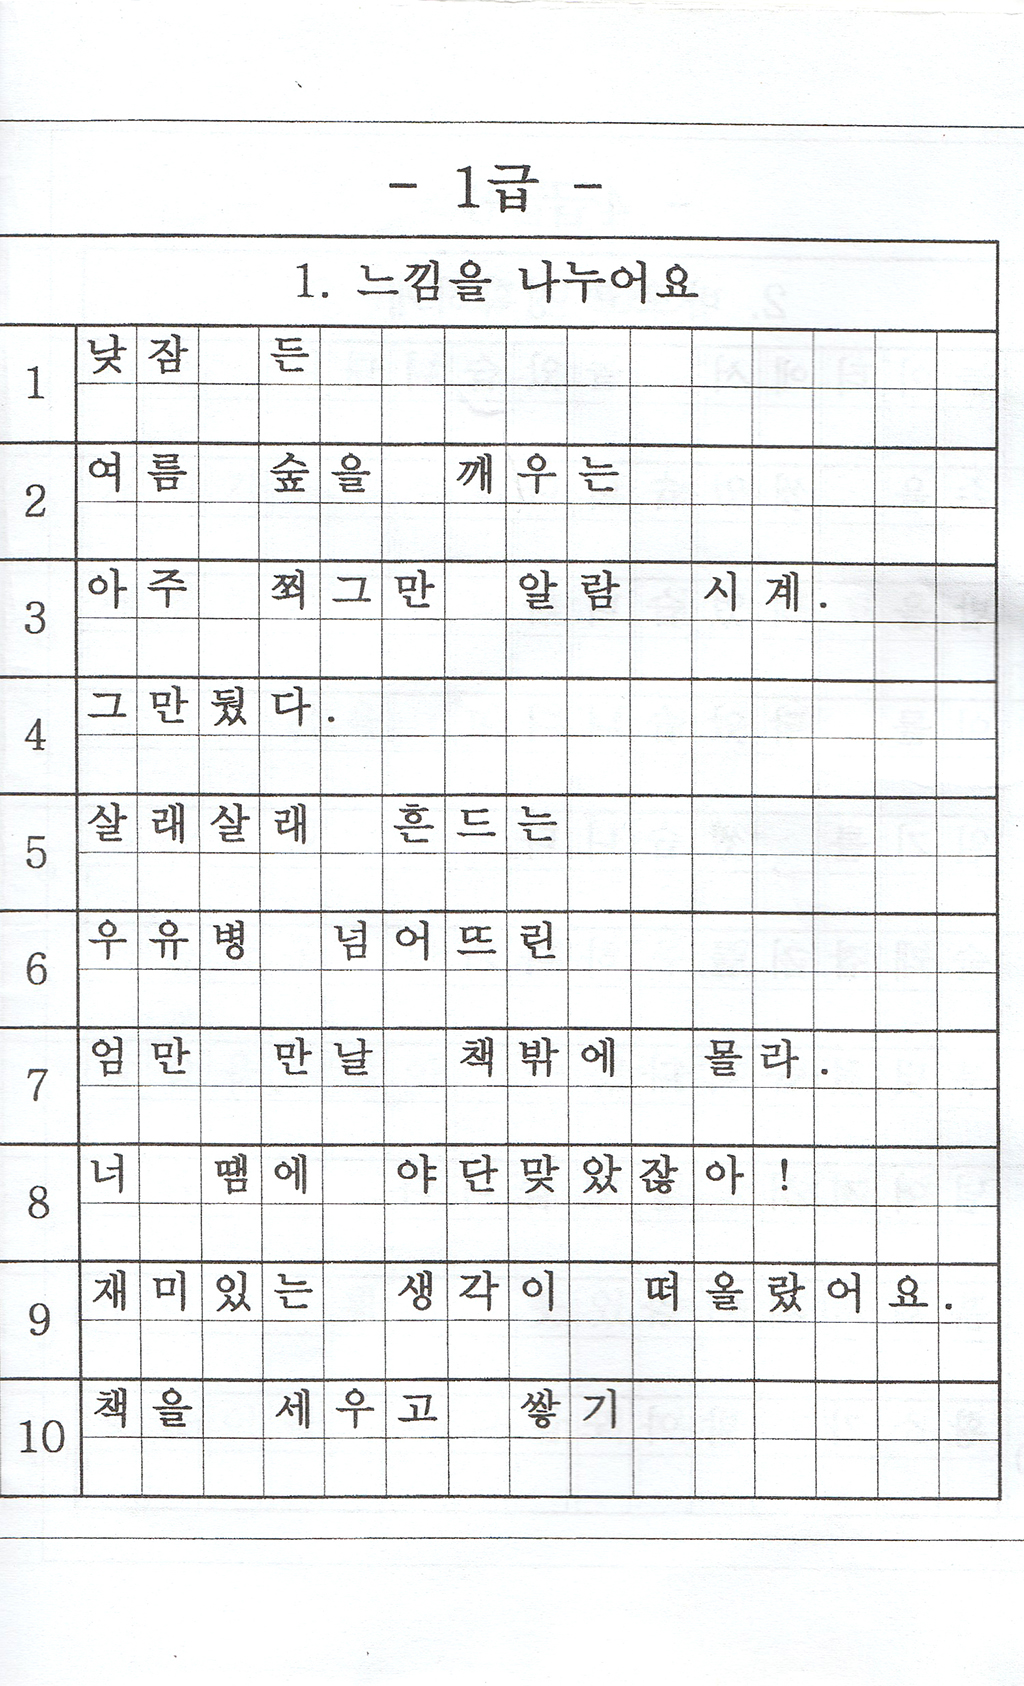 - 1급 -
1. 느낌을 나누어요
1 낮잠 든
2 여름 숲을 깨우는
3 아주 쬐그만 알람 시계.
4 그만뒀다.
5 살래살래 흔드는
6 우유병 넘어뜨린
7 엄만 만날 책밖에 몰라.
8 너 땜에 야단맞았잖아!
9 재미있는 생각이 떠올랐어요.
10 책을 세우고 쌓기